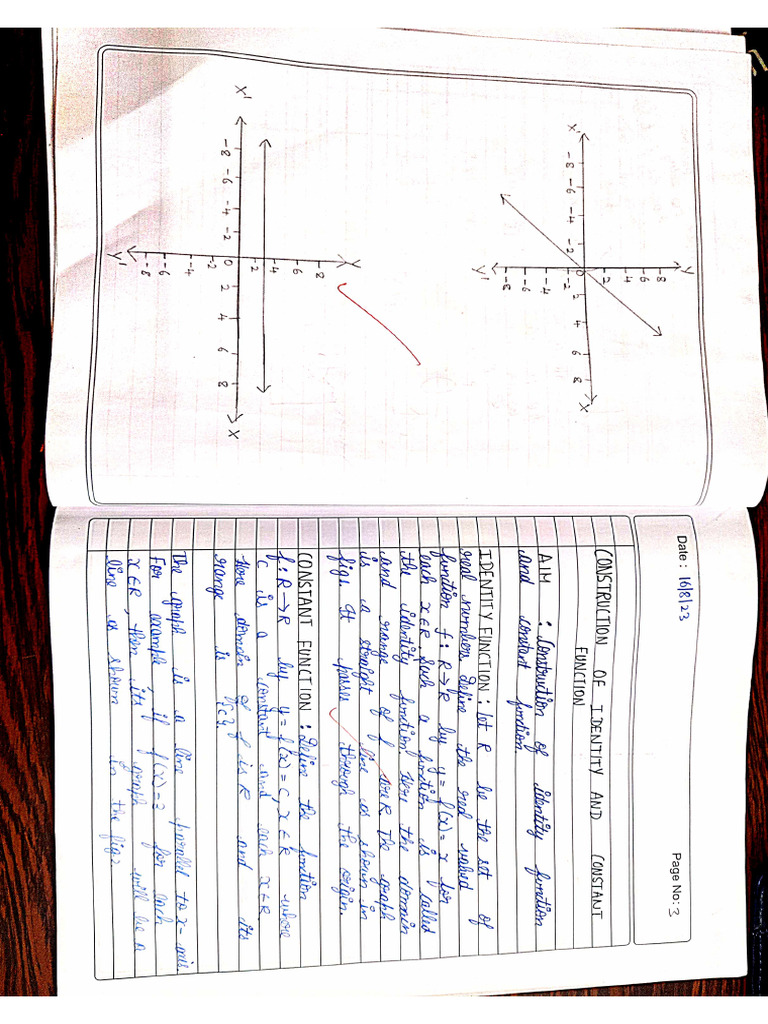 Date : 16/8/23
Page No: 3
CONSTRUCTION OF IDENTITY AND CONSTANT
FUNCTION
AIM : Construction of identity function
and constant function
IDENTITY FUNCTION : let R be the set of
real numbers define the real valued
funtion f : R→R by y = f(x) = x for
each x∈R, Such a function is called
the identity function. Here the domain
and range of f are R. The graph
is a straight line as shown in
fig1. It passes through the origin.
CONSTANT FUNCTION : Define the funtion
f : R→R by y = f(x) = C, x ∈ R where
C is a constant and each x∈R
Here domain of f is R and its
range is {c}.
The graph is a line parallel to x-axis.
For example if f(x)=2 for each
x∈R, then its graph will be a
line as shown in the fig2
Y
8
6
4
2
X' -8 -6 -4 -2 0 2 4 6 8 X
-2
-4
-6
-8
Y'
Y
8
6
4
2
X' -8 -6 -4 -2 0 2 4 6 8 X
-2
-4
-6
-8
Y'